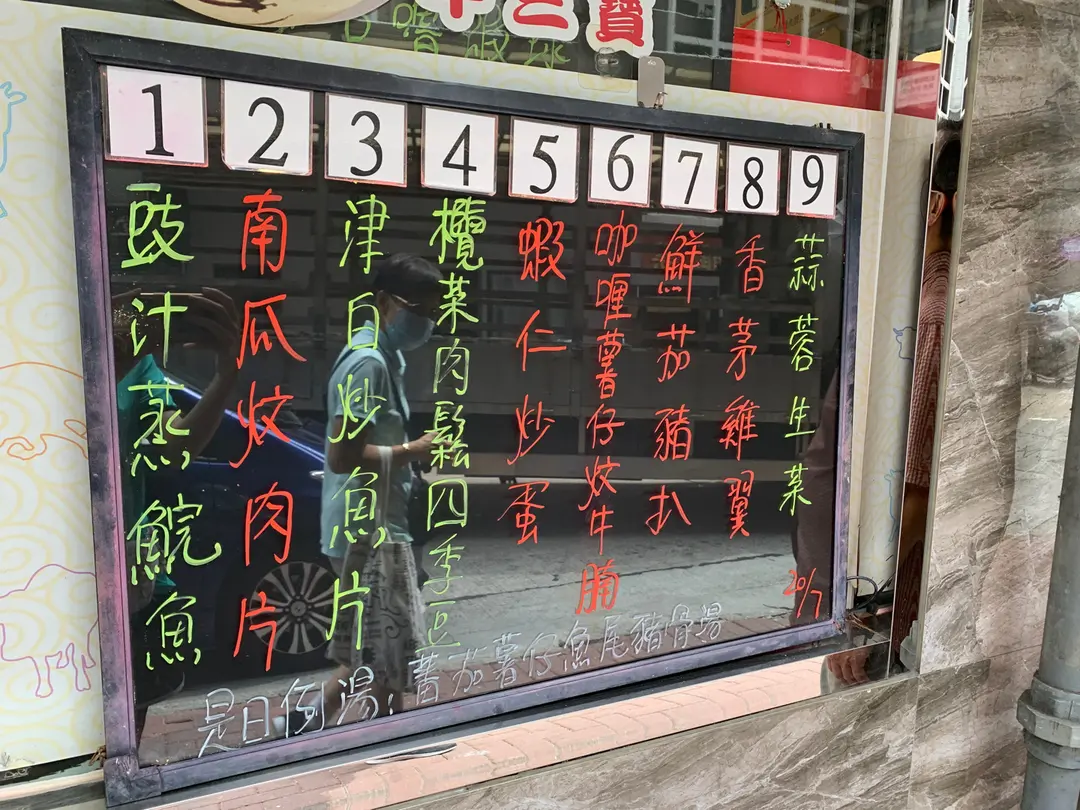 三寶
1
豉汁蒸鯇魚
2
南瓜炆肉片
3
津白炒魚片
4
欖菜肉鬆四季豆
5
蝦仁炒蛋
6
咖喱薯仔炆牛腩
7
鮮茄豬扒
8
香茅雞翼
9
蒜蓉生菜
20/7
是日例湯：蕃茄薯仔魚尾豬骨湯